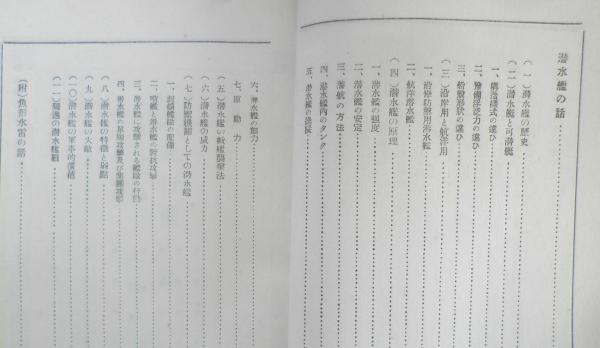 潜水艦の話
(一)潜水艦の歴史
(二)潜水艦と可潜艦
一、構造様式の違ひ
二、豫備浮泛力の違ひ
三、船體形状の違ひ
(三)沿岸用と航洋用
一、沿岸防禦用潜水艦
二、航洋潜水艦
(四)潜水艦の原理
一、潜水艦の強度
二、潜水艦の安定
三、潜航の方法
四、潜水艦内のタンク
五、潜水艦の
六、潜水艦の舵力
七、原動力
(五)潜水艦の戦艦襲撃法
(六)潜水艦の威力
(七)防禦機関としての潜水艦
一、封鎖艦隊の
二、艦と潜水艦の抗攻撃
三、潜水艦に攻撃される艦隊の行動
四、潜水艦の単独攻撃及び集團攻撃
(八)潜水艦の特徴と弱點
(九)潜水艦の大敵
(一〇)潜水艦の軍事的價値
(一一)獨逸の潜水艦戦
(附)魚形水雷の話